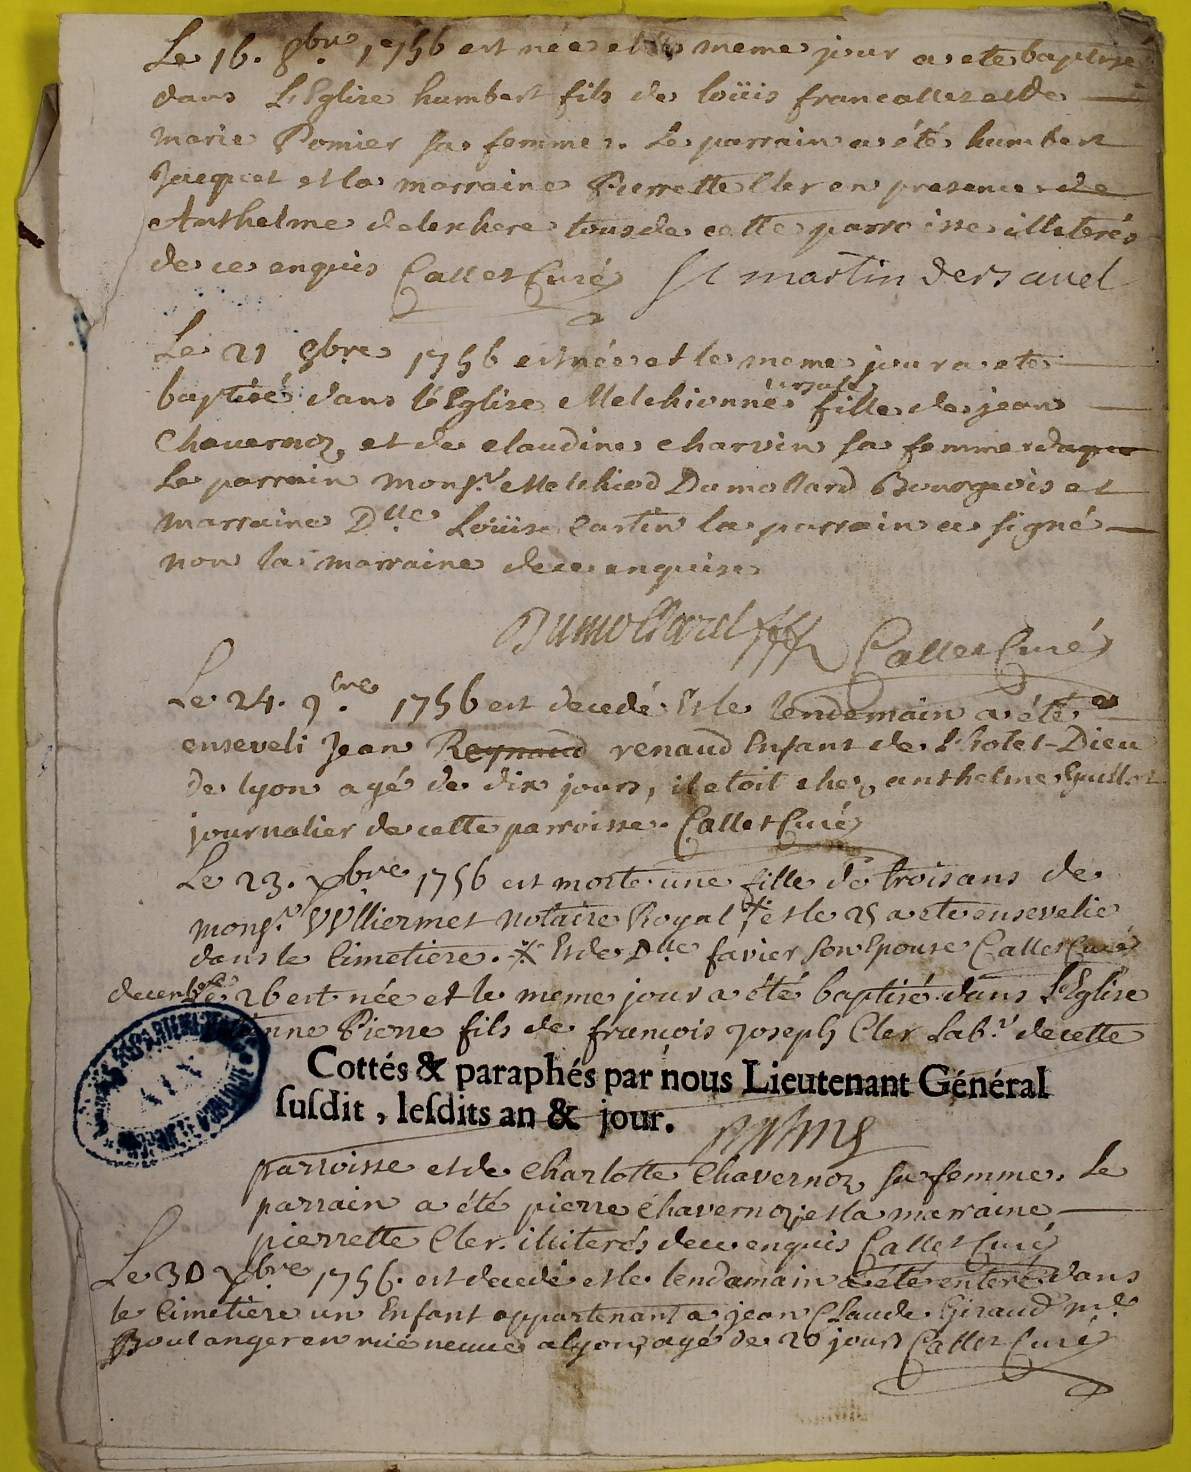 Le 16. 8bre 1756 est née et le meme jour a ete baptise
dans L'Eglise humbert fils de loüis francallet et de
marie Pomier sa femme. Le parrain a été humbert
Jacquet et la marraine Pierrette Cler en presence de
Anthelme tous de cette parroisse illiterés
de ce enquis Callet Curé St martin
Le 21 9bre 1756 est née et le meme jour a ete
baptisé dans l'Eglise Melchionne fille de jean
Chavernoz et de claudine charvin sa femme
Le parrain Monsr. Melchiod Dumollard Bourgeois et
marraine Dlle Loüise Cartin la parrain a signé
non la marraine de ce enquise
Dumollard Callet Curé
Le 24. 9bre 1756 est decedé Et le lendemain a été
enseveli Jean Reynaud renaud Enfant de L'hotel-Dieu
de lyon agé de dix jours, il etoit chez anthelme Guillot
journalier de cette parroisse. Callet Curé
Le 23. Xbre 1756 est morte une fille de trois ans de
Monsr. Vulliermet notaire Royal et le 25 a ete ensevelie
dans le Cimetiere. Et de Dlle favier son Epouse Callet Curé
decembre
Le 26 est née et le meme jour a été baptisé dans L'Eglise
Pierre fils de françois joseph Cler Labr. de cette
Cottés & paraphés par nous Lieutenant Général
ſuſdit, leſdits an & jour.
parroisse et de Charlotte Chavernoz sa femme. Le
parrain a été pierre Chavernoz et la marraine
pierrette Cler. illiterés de ce enquis Callet Curé
Le 30 Xbre 1756. est decedé et le lendamain a été enteré dans
le Cimetiere un Enfant appartenant a jean Claude Giraud md.
Boulanger en rüe neuve a lyon, agé de 20 jours Callet Curé